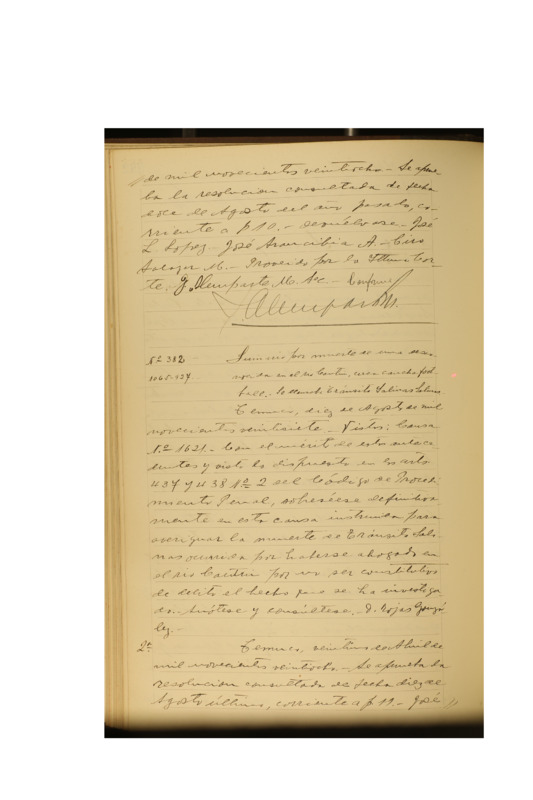 de mil novecientos veintiocho - Se aprue
ba la resolucion consultada de fecha
doce de Agosto del año pasado, co-
rriente a f 10. - devuélvase. - José
L Lopez - José Arancibia A. - Ciro
Salazar M. - Proveido por la Iltma Cor-
te. G. Alemparte M. Sec - Conforme
G. Alemparte M.
Nº 382
1065-137.
Sumario por muerte de una
en el rio Cautin, cerca cancha foot
ball. Tránsito Salinas Salinas
Temuco, diez de Agosto de mil
novecientos veintisiete. - Vistos: Causa
Nº 1621. - Con el mérito de estos antece
dentes y visto lo dispuesto en los arts
437 y 438 Nº 2 del Código de Procedi-
miento Penal, sobreséese definitiva
mente en esta causa instruida para
averiguar la muerte de Tránsito Sali-
nas ocurrida por haberse ahogado en
el rio Cautin por no ser constitutivo
de delito el hecho que se ha investiga
do. Anótese y consúltese. - D. Rojas Gonzá
lez. -
2ª
Temuco, veintiuno de Abril de
mil novecientos veintiocho. - Se aprueba la
resolucion consultada de fecha diez de
Agosto último, corriente a f 11. - José